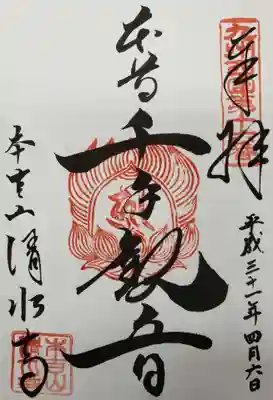 奉拝
平成三十一年四月六日
本尊千手観音
本吉山清水寺